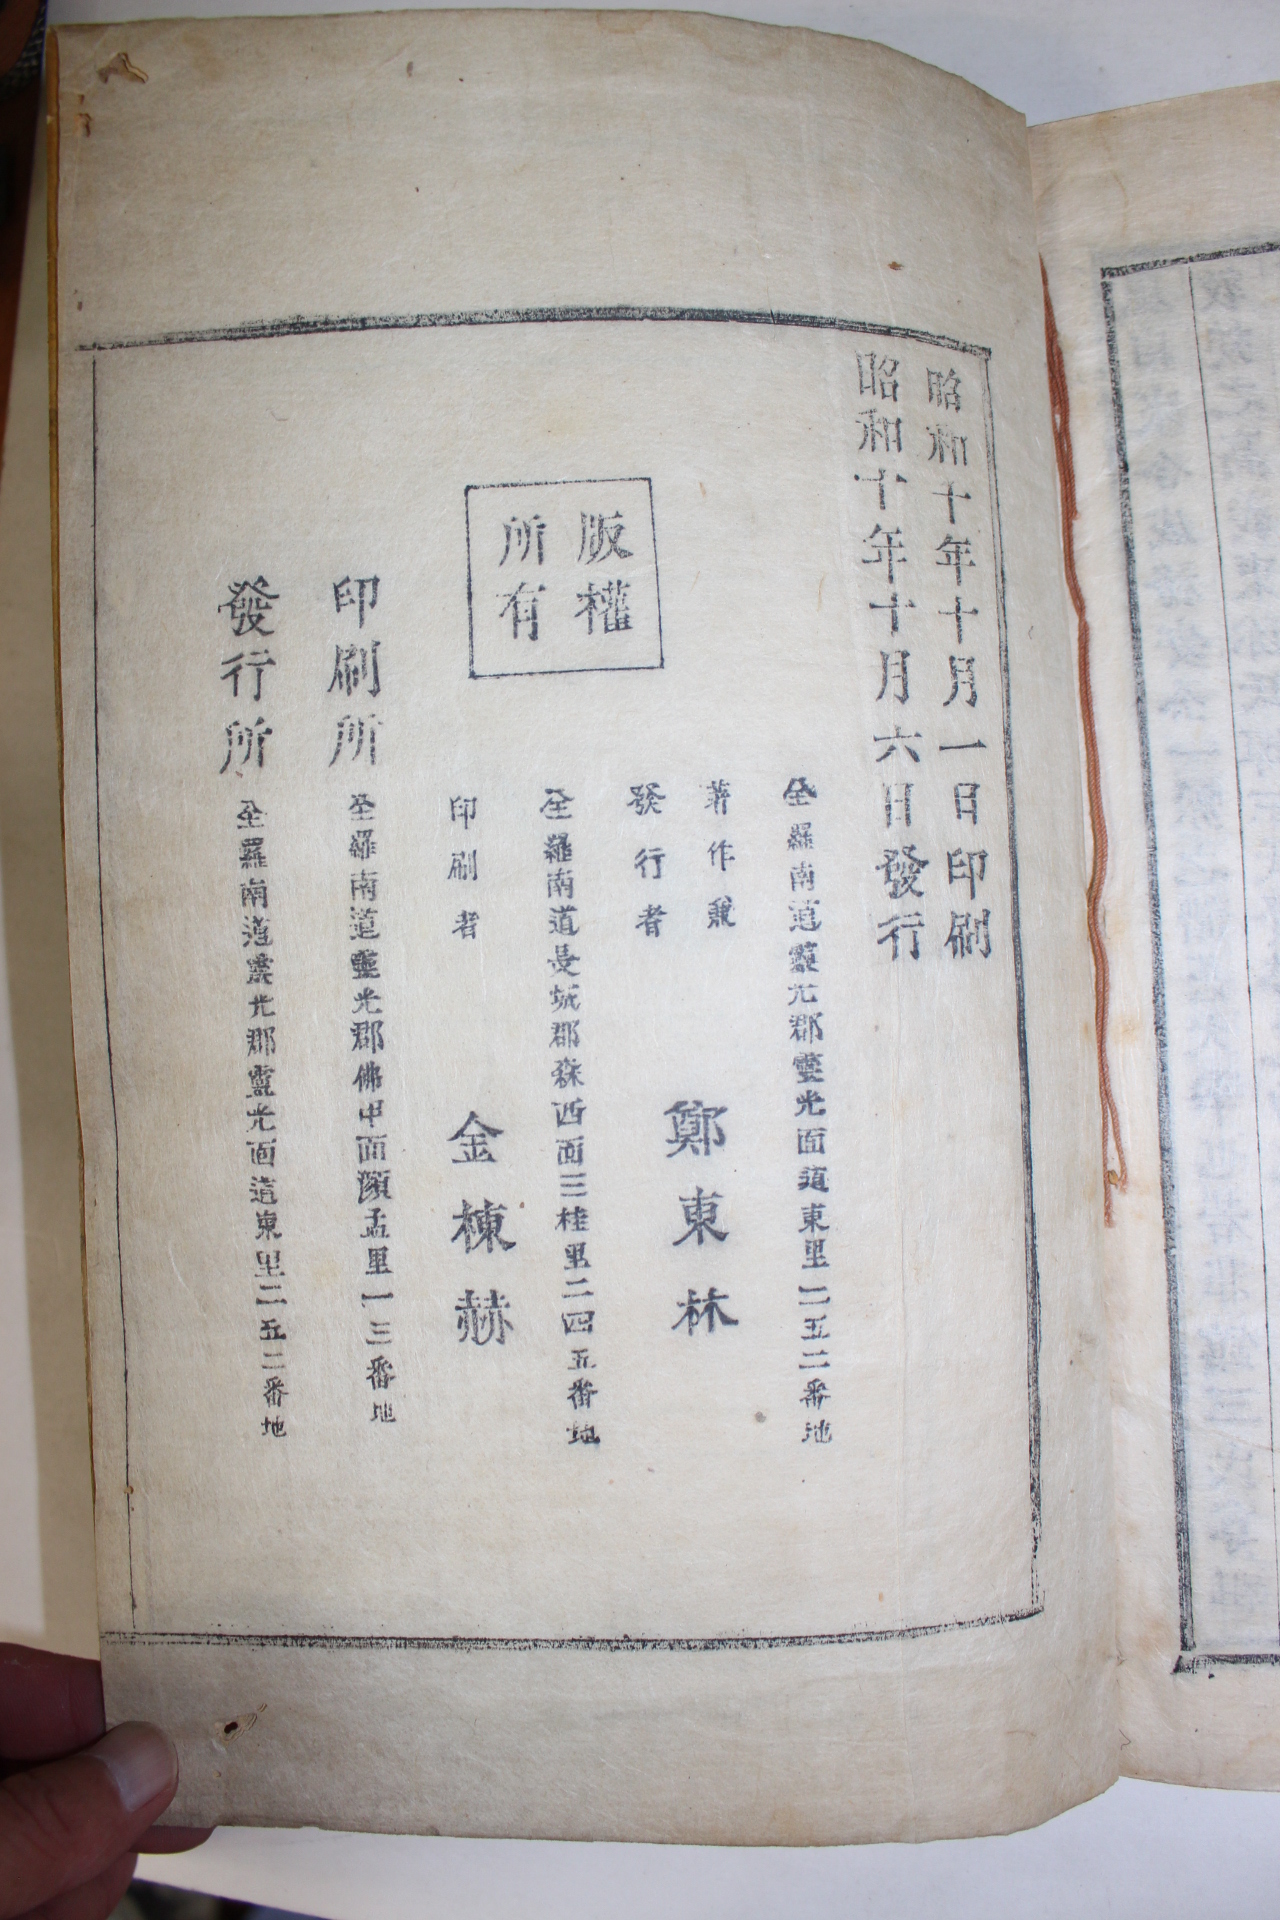 昭和十年十月一日印刷
昭和十年十月六日發行
全羅南道靈光郡靈光面道東里二五二番地
著作兼
發行者 鄭東林
版權
所有
全羅南道長城郡森西面三桂里二四五番地
印刷者 金棟赫
印刷所 全羅南道靈光郡佛甲面順孟里一三番地
發行所 全羅南道靈光郡靈光面道東里二五二番地